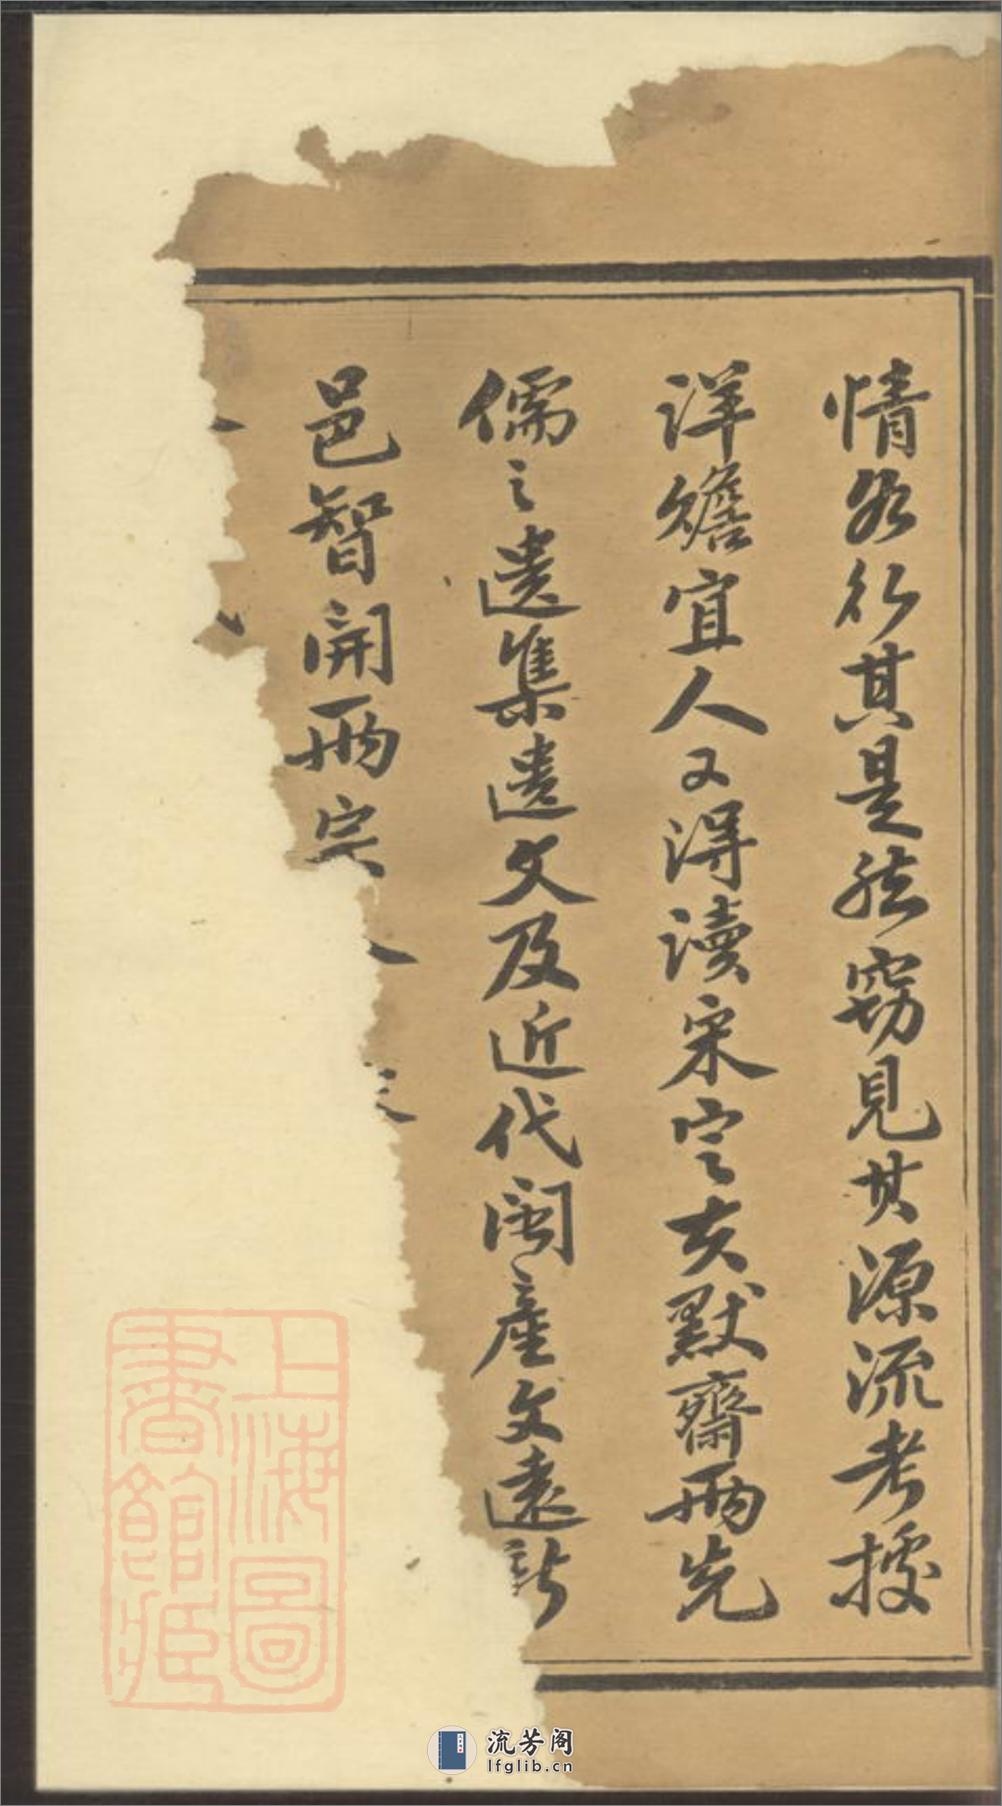 情行其是然窃見其源流考據
詳贍宜人又得讀宋定友默齋兩先
儒之遺集遺文及近代閩產文遠
邑智開兩宗
上海圖
書館藏
流芳阁
lfglib.cn